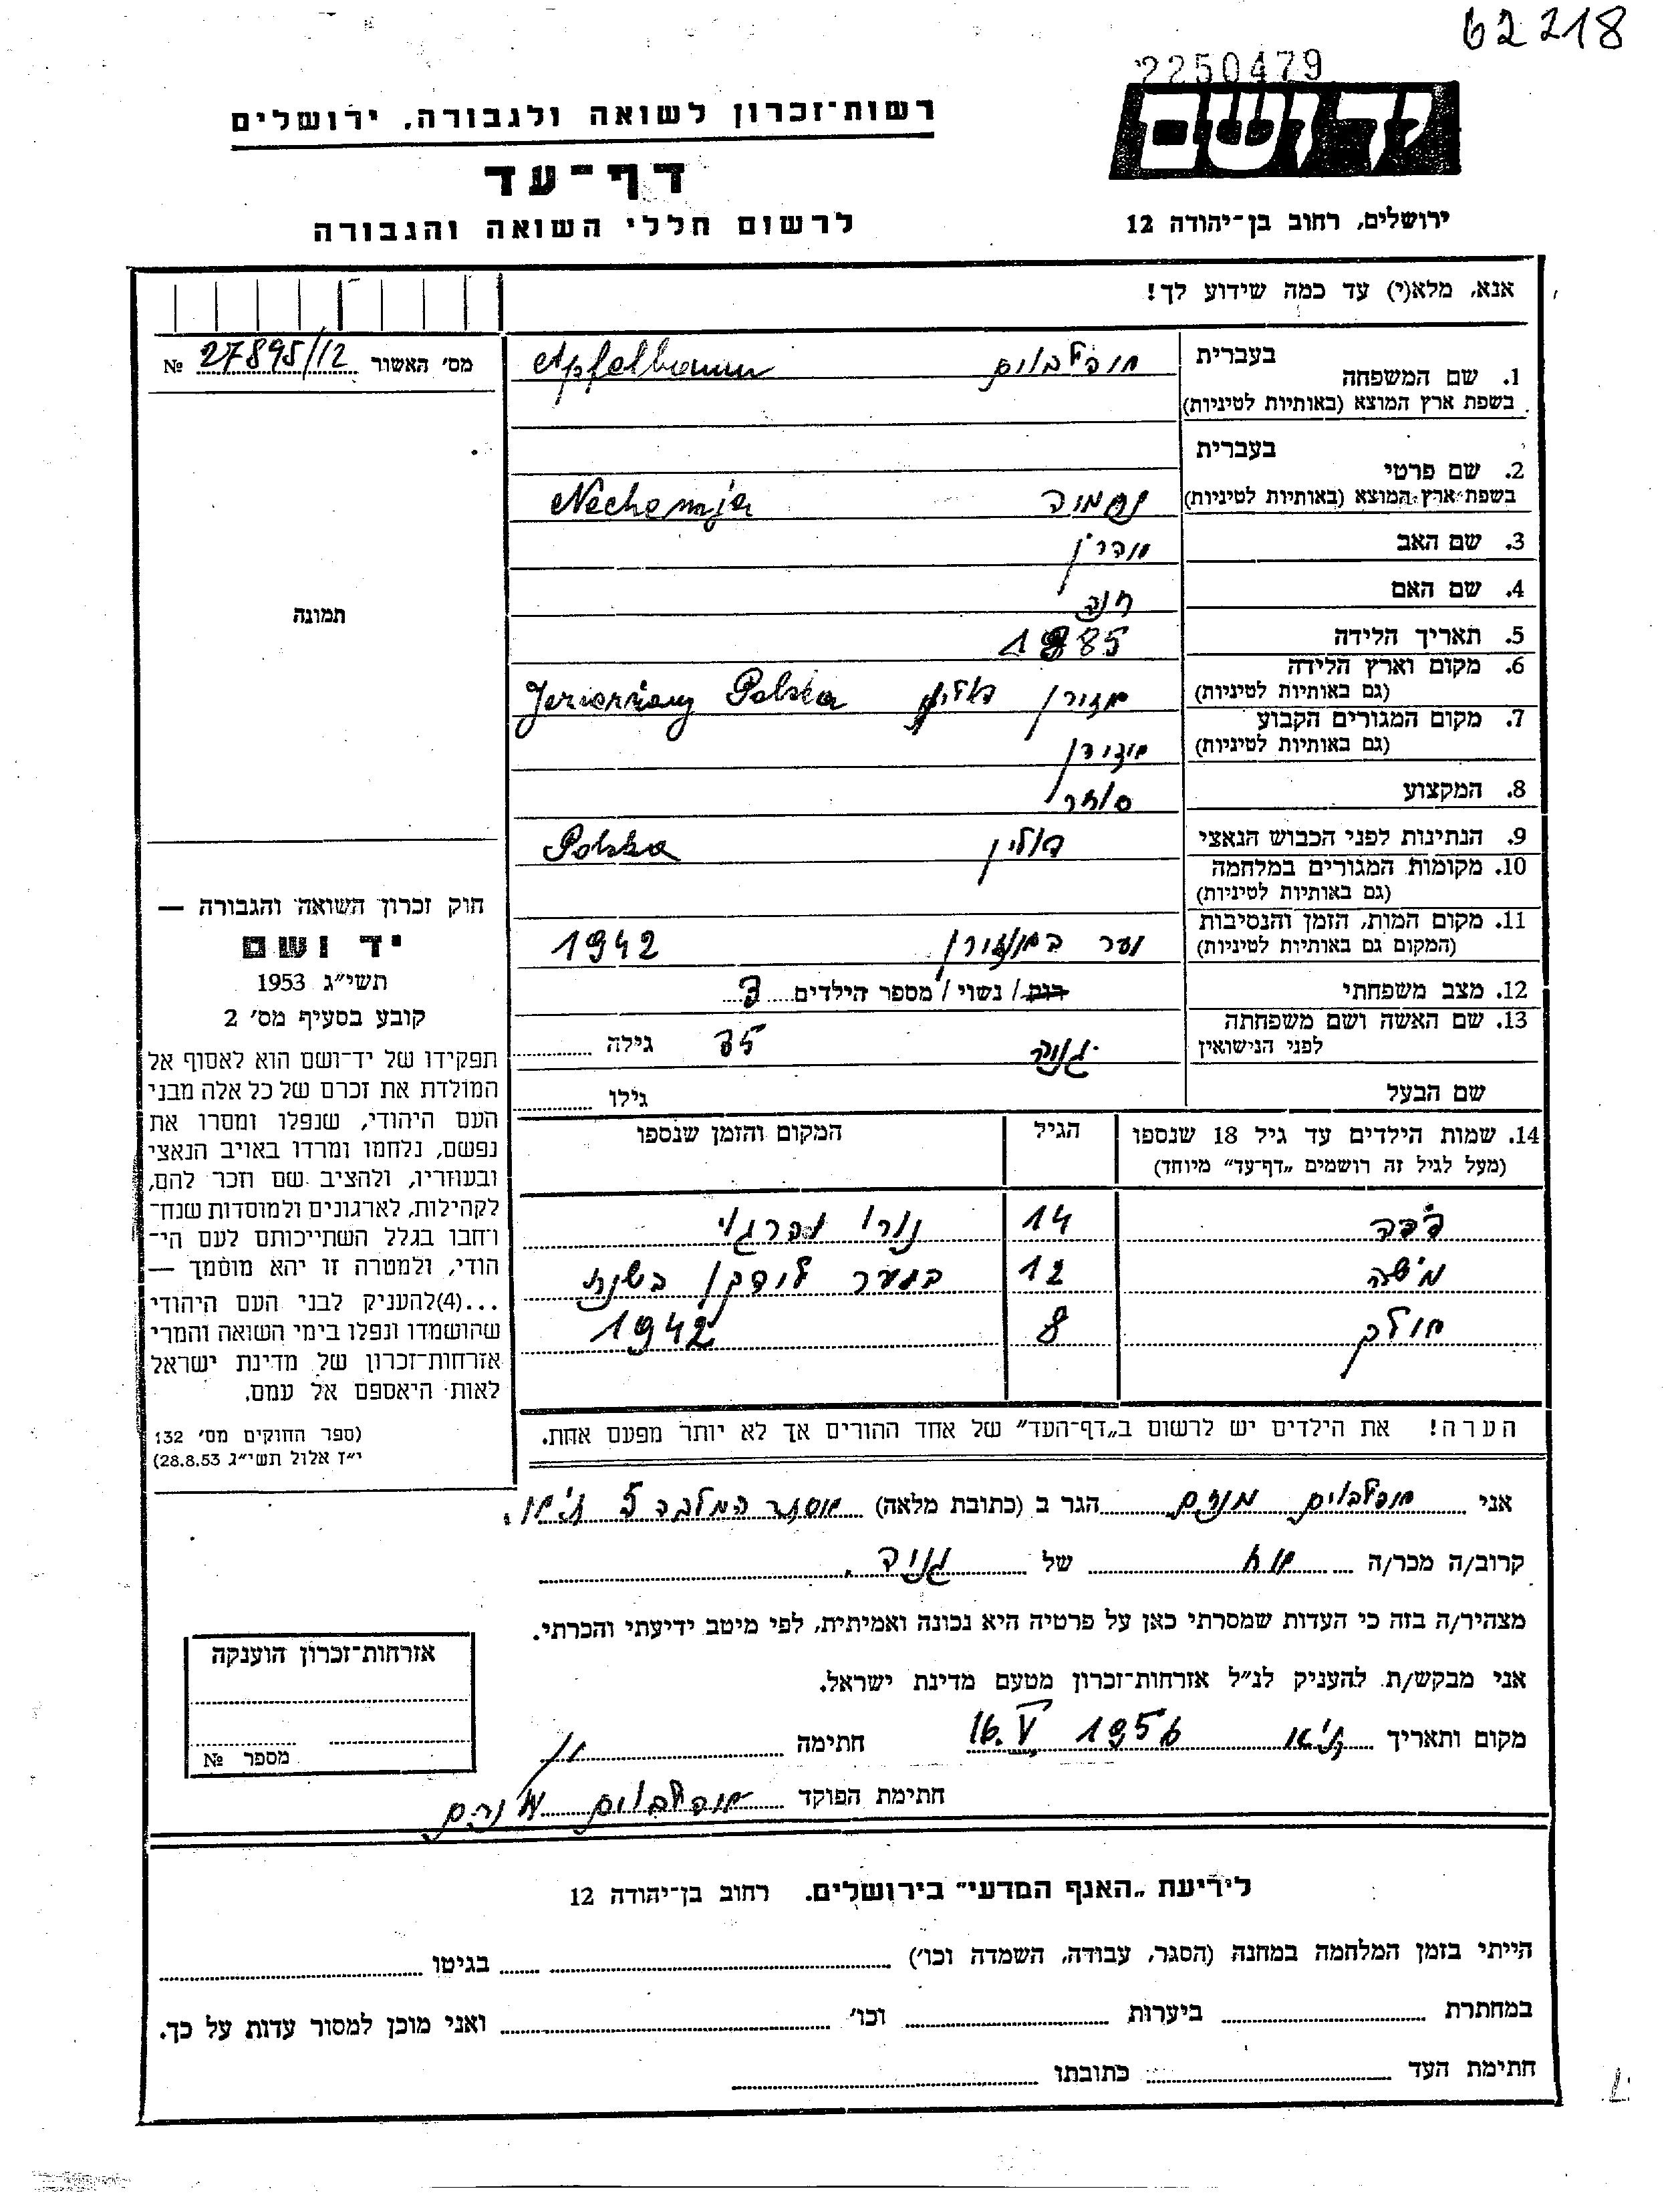 62218
2250479
יד ושם
רשות־זכרון לשואה ולגבורה, ירושלים
דף־עד
לרשום חללי השואה והגבורה
ירושלים, רחוב בן־יהודה 12
אנא, מלא(י) עד כמה שידוע לך!
מס׳ האשור 27895/12 №
בעברית
1. שם המשפחה אפפלבוים Apfelbaum
בשפת ארץ המוצא (באותיות לטיניות)
בעברית
2. שם פרטי
בשפת ארץ המוצא (באותיות לטיניות) נחמיה Nechemja
3. שם האב
4. שם האם חנה
5. תאריך הלידה 1885
6. מקום וארץ הלידה
(גם באותיות לטיניות) פולין Polska
7. מקום המגורים הקבוע
(גם באותיות לטיניות)
8. המקצוע סוחר
9. הנתינות לפני הכבוש הנאצי פולין Polska
10. מקומות המגורים במלחמה
(גם באותיות לטיניות)
11. מקום המות, הזמן והנסיבות
(המקום גם באותיות לטיניות) 1942
12. מצב משפחתי רווק / נשוי / מספר הילדים 3
13. שם האשה ושם משפחתה
לפני הנישואין גילה 35
שם הבעל גילו
14. שמות הילדים עד גיל 18 שנספו הגיל המקום והזמן שנספו
(מעל לגיל זה רושמים „דף־עד״ מיוחד)
14
מישה 12 בשנת
8 1942
הערה! את הילדים יש לרשום ב„דף־העד״ של אחד ההורים אך לא יותר מפעם אחת.
תמונה
חוק זכרון השואה והגבורה —
יד ושם
תשי״ג 1953
קובע בסעיף מס׳ 2
תפקידו של יד־ושם הוא לאסוף אל
המולדת את זכרם של כל אלה מבני
העם היהודי, שנפלו ומסרו את
נפשם, נלחמו ומרדו באויב הנאצי
ובעוזריו, ולהציב שם וזכר להם,
לקהילות, לארגונים ולמוסדות שנח־
רבו בגלל השתייכותם לעם הי־
הודי, ולמטרה זו יהא מוסמך —
...(4)להעניק לבני העם היהודי
שהושמדו ונפלו בימי השואה והמרי
אזרחות־זכרון של מדינת ישראל
לאות היאספם אל עמם.
(ספר החוקים מס׳ 132
י״ז אלול תשי״ג 28.8.53)
אני אפפלבוים מנחם הגר ב (כתובת מלאה) אסתר המלכה 5 ת״א
קרוב/ה מכר/ה אח של
מצהיר/ה בזה כי העדות שמסרתי כאן על פרטיה היא נכונה ואמיתית, לפי מיטב ידיעתי והכרתי.
אני מבקש/ת להעניק לנ״ל אזרחות־זכרון מטעם מדינת ישראל.
מקום ותאריך ת״א 16.V 1956 חתימה
חתימת הפוקד אפפלבוים מנחם
אזרחות־זכרון הוענקה
מספר №
לידיעת „האגף המדעי״ בירושלים. רחוב בן־יהודה 12
הייתי בזמן המלחמה במחנה (הסגר, עבודה, השמדה וכו׳) בגיטו
במחתרת ביערות וכו׳ ואני מוכן למסור עדות על כך.
חתימת העד כתובתו